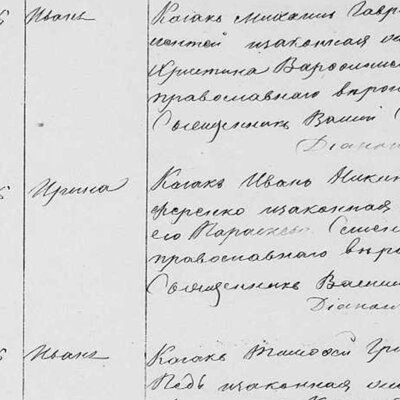 Иванъ
Козакъ Михаилъ Гавр
и законная
Христина
православнаго
Священникъ
Ирина
Козакъ Иванъ Никит
ференко и законная
его Параскева Семен
православнаго
Священникъ Васили
Діакон
Иванъ
Козакъ Тимофей Гри
и законная